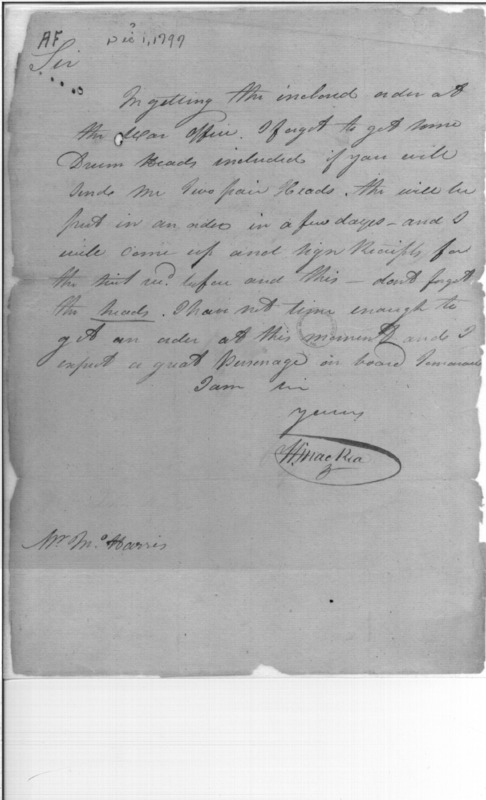 AF Decr 1, 1799
Sir
In getting the inclosed order at
the War Office. I forgot to get some
Drum Heads included if you will
send me Two pair Heads. the will be
put in an order in a few days - and I
will come up and sign Receipts for
the tent recd. before and this - dont forget
the heads. I have not time enough to
get an order at this moment and I
expect a great Personage on board Tomorrow
I am Sir
yours
H MacRea
Mr. Mc Harris